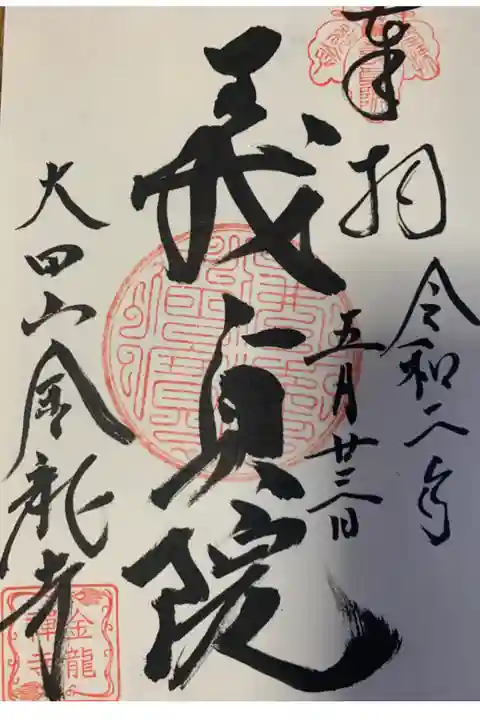 奉拝
令和二年
五月廿三日
義貞院
大田山金龍寺
金龍
禅寺